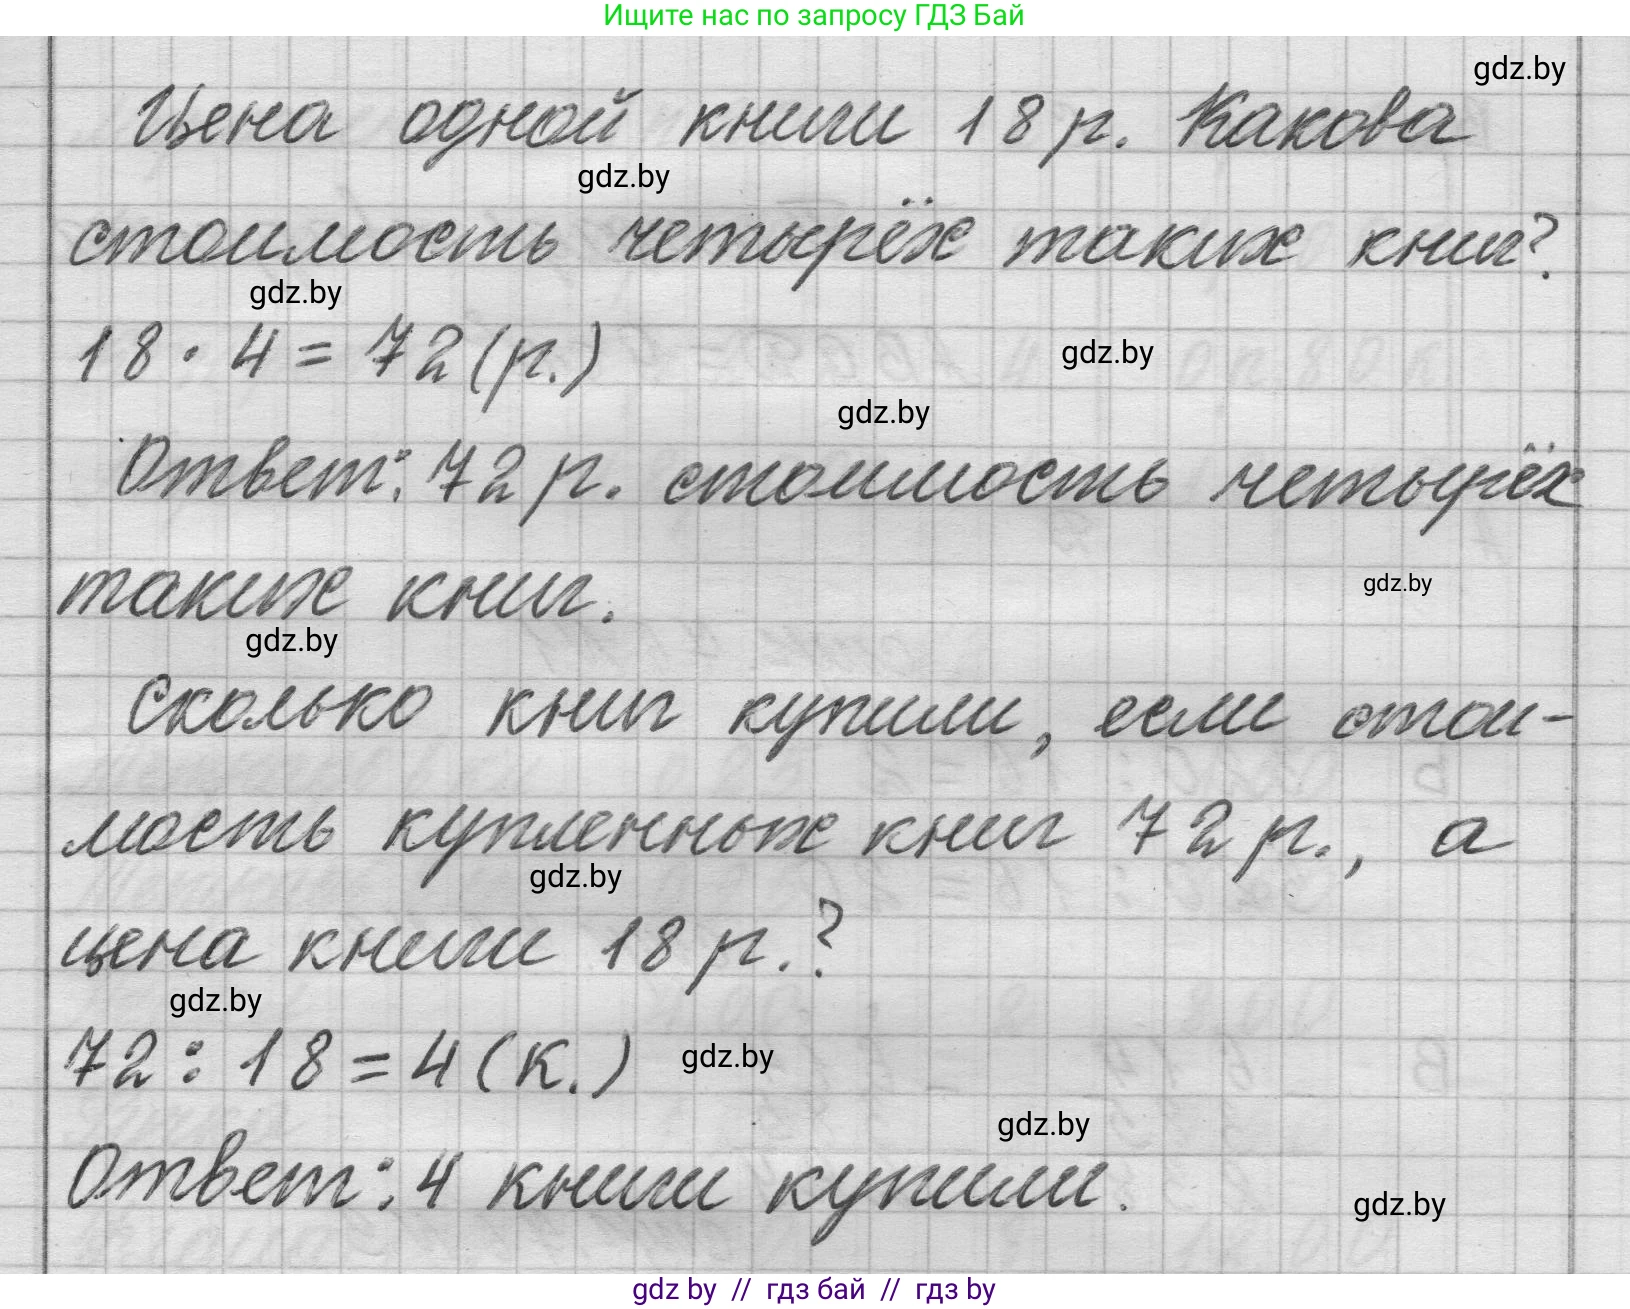 Ищите нас по запросу ГДЗ Бай
gdz.by
Цена одной книги 18 р. Какова
gdz.by
стоимость четырёх таких книг?
gdz.by
18 · 4 = 72 (р.)
gdz.by
gdz.by
Ответ: 72 р. стоимость четырёх
таких книг.
gdz.by
gdz.by
Сколько книг купили, если стои-
мость купленных книг 72 р., а
gdz.by
цена книги 18 р.?
gdz.by
72 : 18 = 4 (к.)
gdz.by
gdz.by
Ответ: 4 книги купили.
gdz.by
gdz by // гдз бай // гдз by